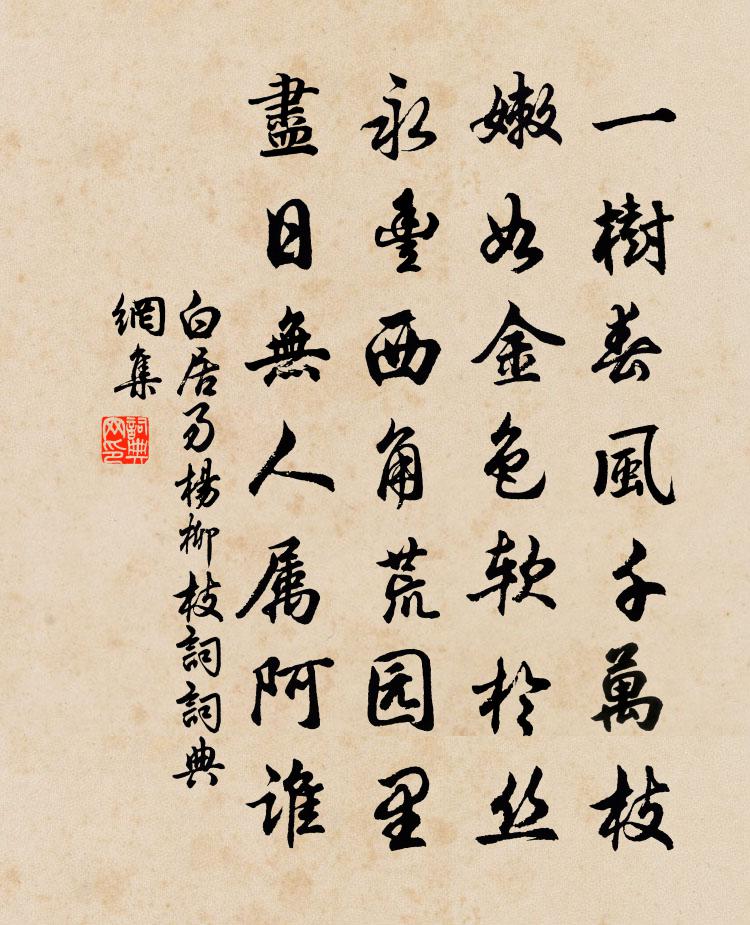 一樹春風千萬枝
嫩如金色軟於丝
永豐西角荒园里
盡日無人属阿誰
白居易楊柳枝詞詞典
網集
詞典网印